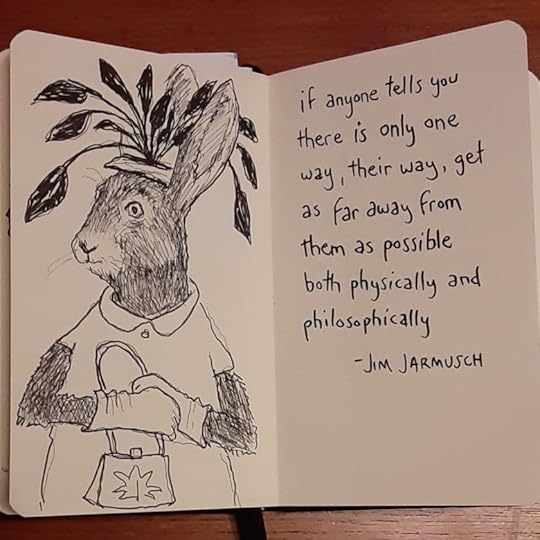 if anyone tells you
there is only one
way, their way, get
as far away from
them as possible
both physically and
philosophically
-JIM JARMUSCH